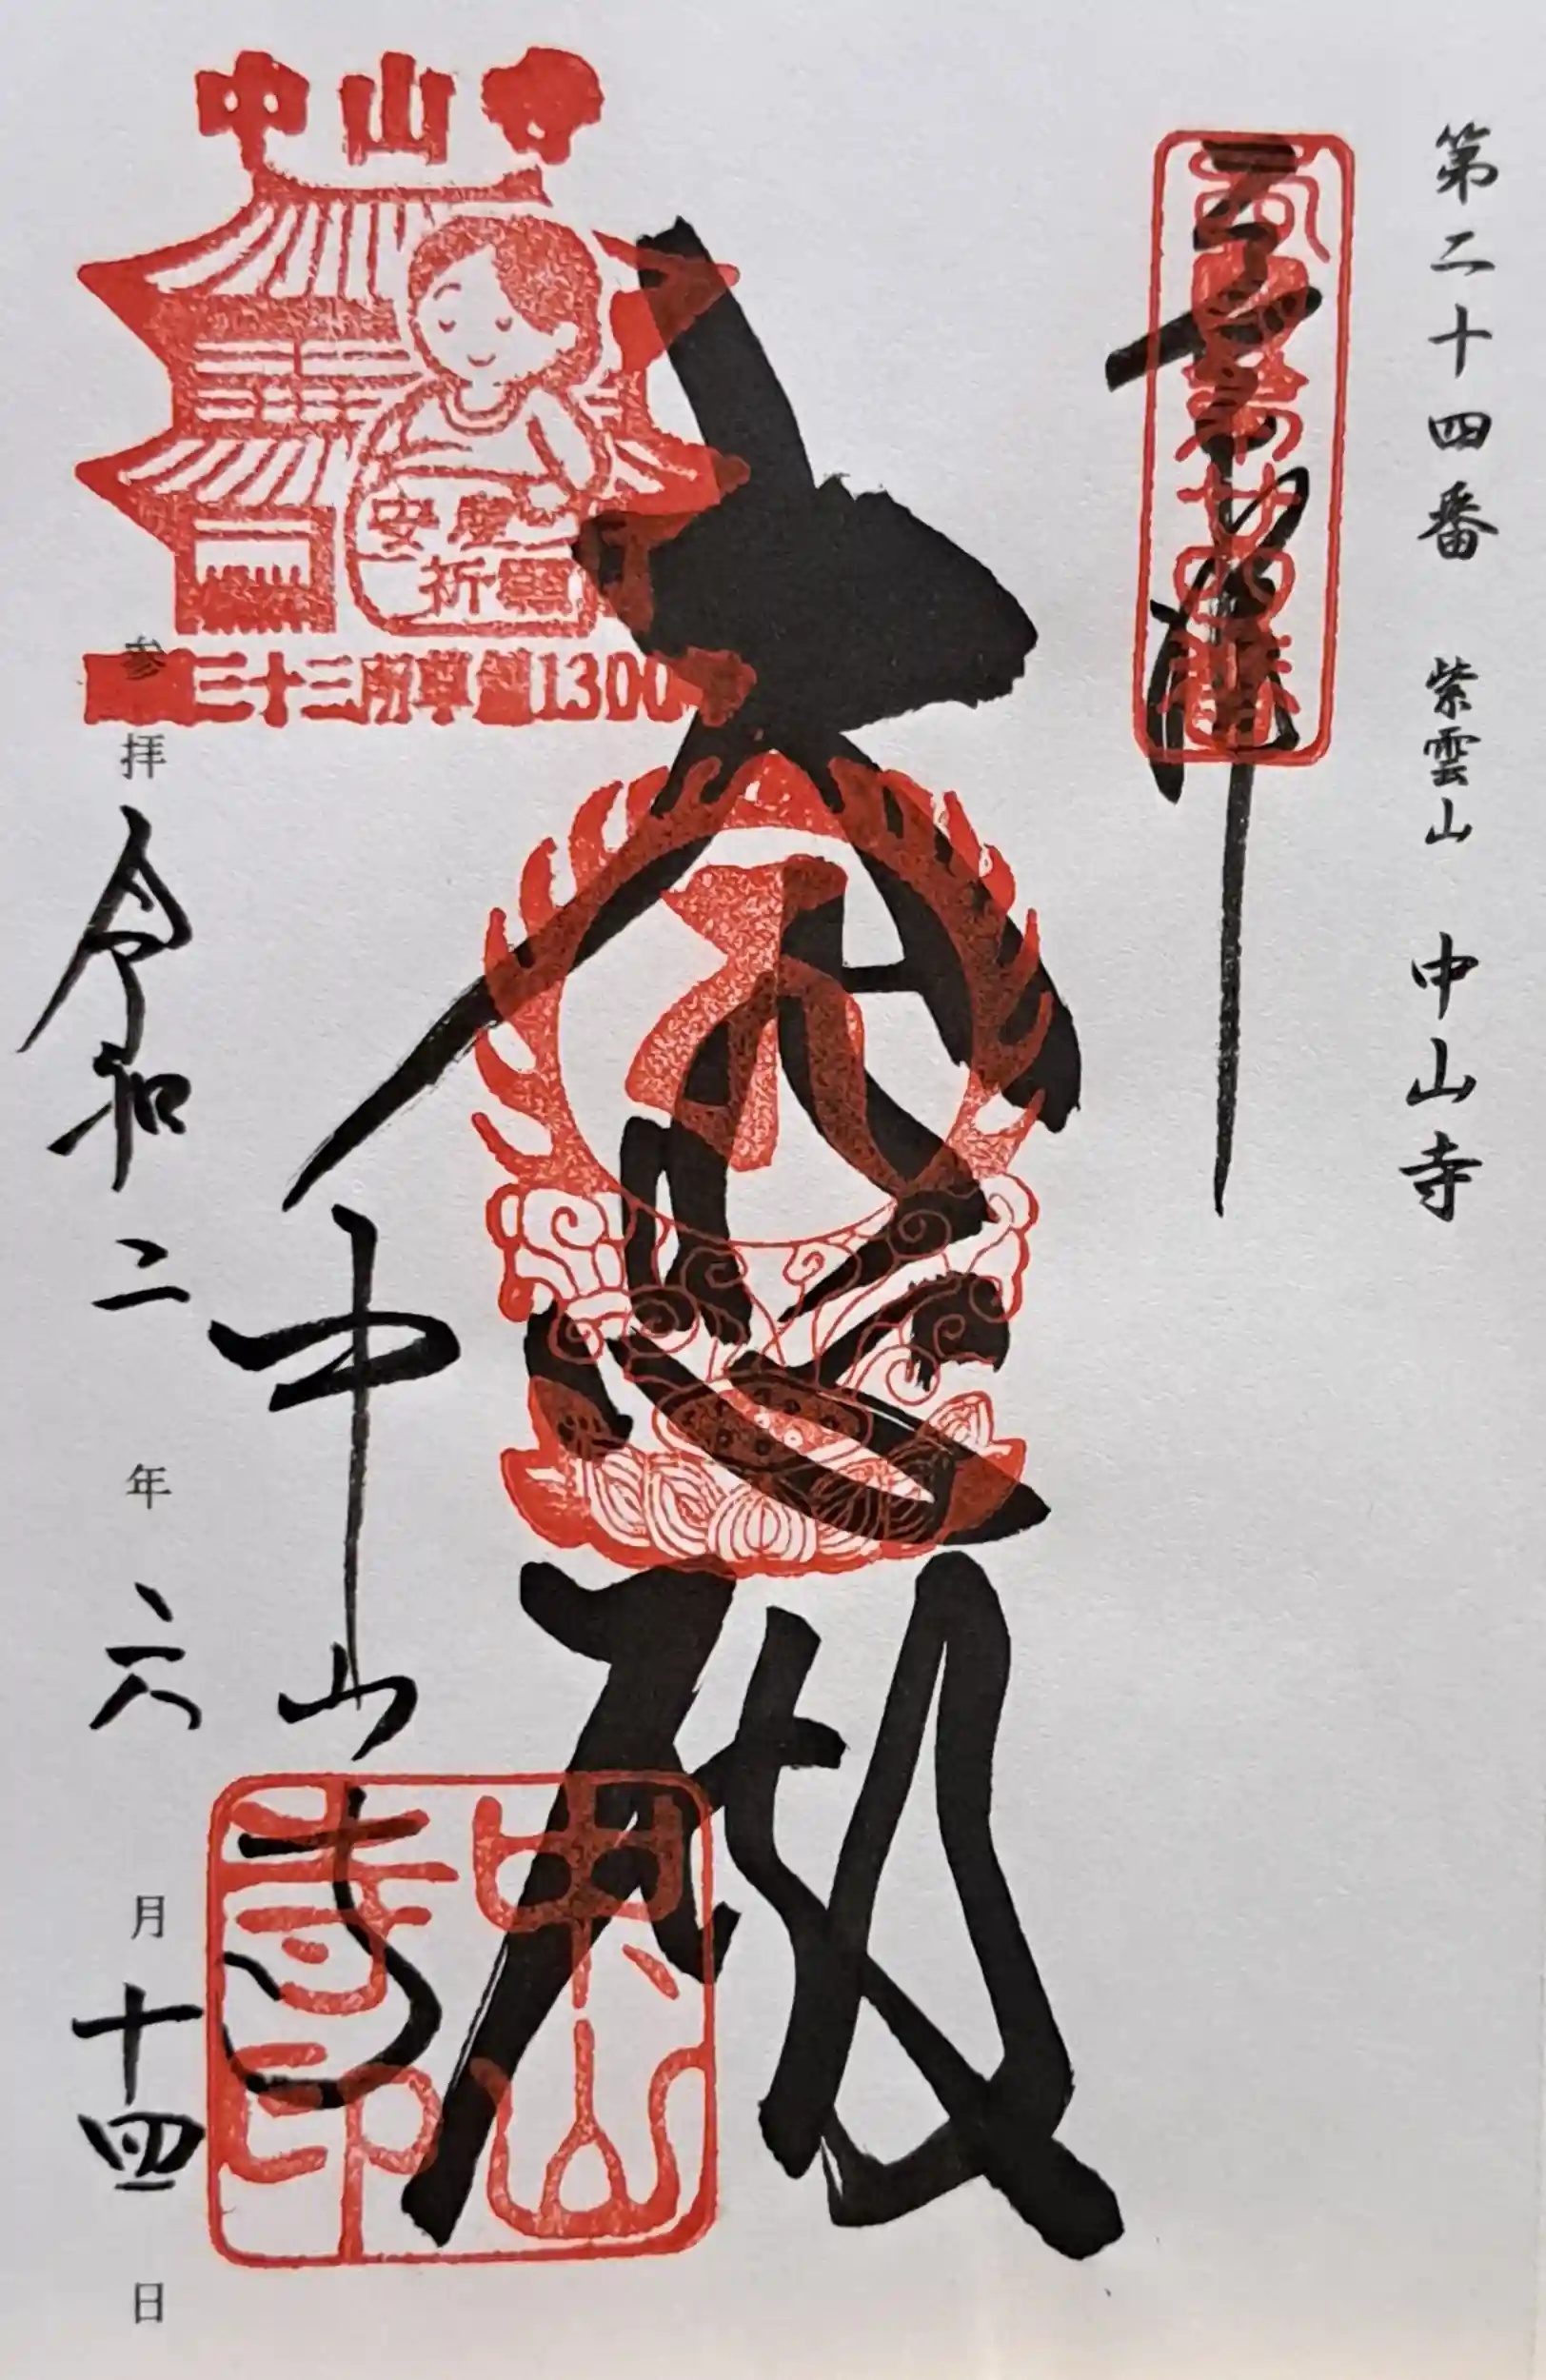 第二十四番 紫雲山 中山寺
西国第廿四番
奉拝
大悲殿
中山寺
安産
祈願
西国三十三所草創1300年
中山寺
中山寺印
参拝 令和二年六月十四日